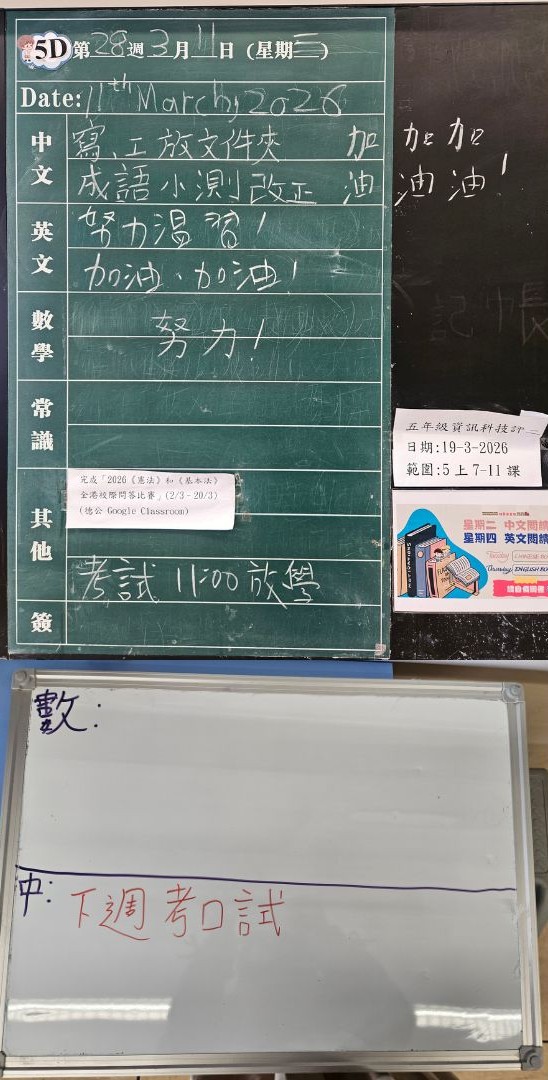 5D 第28週3月11日(星期三)
Date: 11th March, 2026
中文
寫、工放文件夾
成語小測改正
加油
加油
加油!
英文
努力溫習!
加油、加油!
數學
努力!
常識
其他
完成「2026《憲法》和《基本法》
全港校際問答比賽」(2/3 - 20/3)
(德公 Google Classroom)
考試 11:00 放學
簽
五年級資訊科技評
日期:19-3-2026
範圍:5 上 7-11 課
星期二 中文閱讀
星期四 英文閱讀
Tuesday CHINESE
Thursday ENGLISH
數:
中:
下週考口試